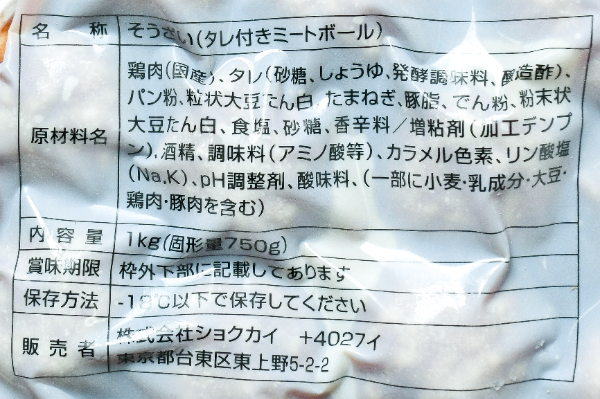 名称 そうざい(タレ付きミートボール)
原材料名 鶏肉(国産)、タレ(砂糖、しょうゆ、発酵調味料、醸造酢)、
パン粉、粒状大豆たん白、たまねぎ、豚脂、でん粉、粉末状
大豆たん白、食塩、砂糖、香辛料/増粘剤(加工デンプ
ン)、酒精、調味料(アミノ酸等)、カラメル色素、リン酸塩
(Na,K)、pH調整剤、酸味料、(一部に小麦・乳成分・大豆・
鶏肉・豚肉を含む)
内容量 1kg(固形量750g)
賞味期限 枠外下部に記載してあります
保存方法 -18℃以下で保存してください
販売者 株式会社ショクカイ +4027イ
東京都台東区東上野5-2-2